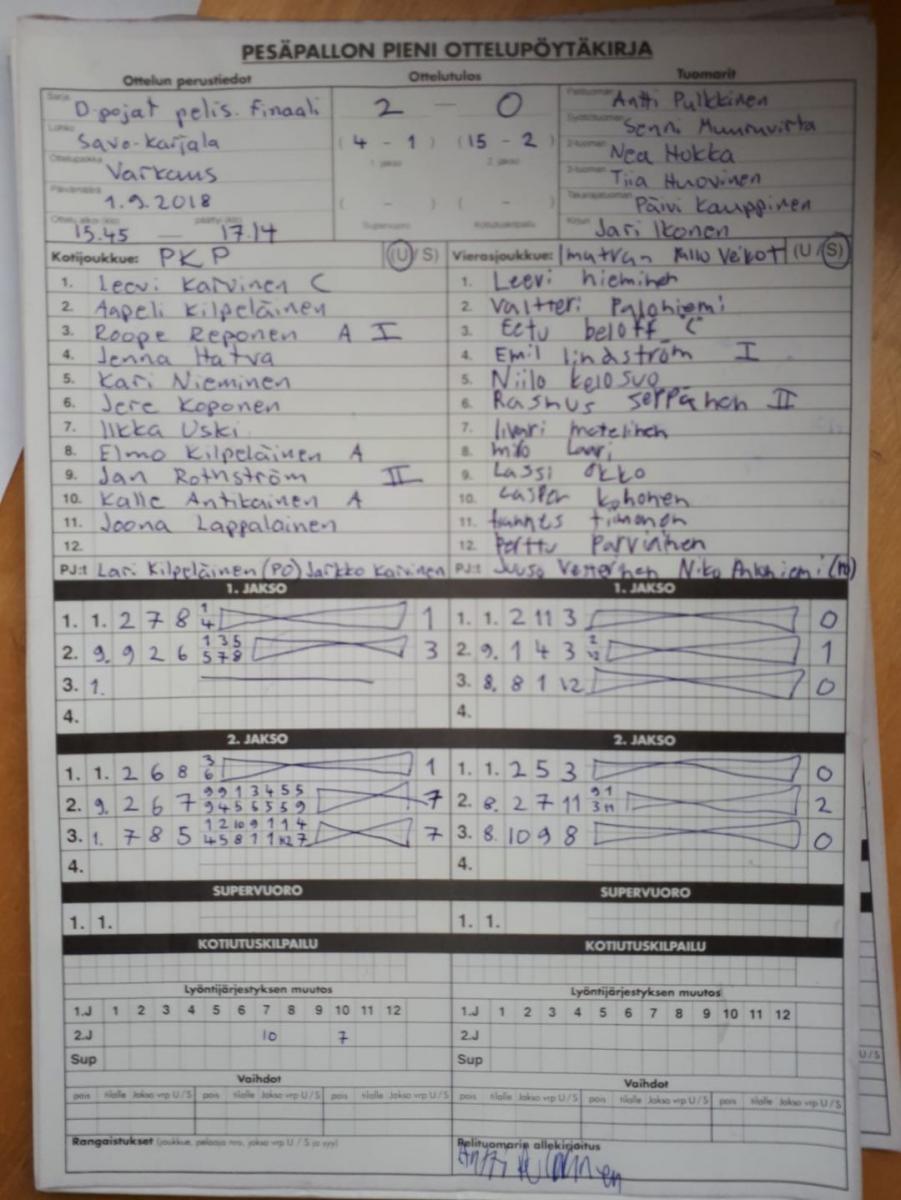 PESÄPALLON PIENI OTTELUPÖYTÄKIRJA
Ottelun perustiedot Ottelutulos Tuomarit
Sarja D-pojat pelis. finaali 2 – 0 Pelituomari Antti Pulkkinen
Lohko Savo-Karjala (4 - 1) (15 - 2) Syöttötuomari Senni Muuruvirta
1. jakso 2. jakso
Ottelupaikka Varkaus 2-tuomari Nea Hokka
3-tuomari Tiia Huovinen
Päivämäärä 1.9.2018 ( - ) ( - ) Takarajatuomari Päivi Kauppinen
Ottelu alkoi (klo) 15.45 — päättyi (klo) 17.14 Supervuoro Kotiutuskilpailu Kirjuri Jari Ikonen
Kotijoukkue: PKP (U/S) Vierasjoukkue: Imatran Pallo Veikot (U/S)
1. Leevi Karvinen C 1. Leevi nieminen
2. Aapeli Kilpeläinen 2. Valtteri Palohiemi
3. Roope Reponen A I 3. Eetu beloff C
4. Jenna Hatva 4. Emil lindström I
5. Kari Nieminen 5. Niilo kelosuo
6. Jere Koponen 6. Rasmus Seppänen II
7. Ilkka Uski 7. Iivari matelinen
8. Elmo Kilpeläinen A 8. milo Lauri
9. Jan Rothström II 9. Lassi okko
10. Kalle Antikainen A 10. Casper kohonen
11. Joona Lappalainen 11. hannes tiimonen
12. 12. Perttu Parviainen
PJ:t Lari Kilpeläinen (PO) Jarkko Karvinen PJ:t Juuso Niko (PO)
1. JAKSO 1. JAKSO
1. 1. 2 7 8 1 1 1. 1. 2 11 3 0
4
2. 9. 9 2 6 1 3 5 3 2. 9. 1 4 3 2 1
5 7 8 12
3. 1. 3. 8. 8 1 12 0
4. 4.
2. JAKSO 2. JAKSO
1. 1. 2 6 8 3 1 1. 1. 2 5 3 0
6
2. 9. 2 6 7 9 9 1 3 4 5 5 7 2. 8. 2 7 11 9 1 2
9 4 5 6 5 5 9 3 11
3. 1. 7 8 5 1 2 10 9 1 1 4 7 3. 8. 10 9 8 0
4 5 8 1 1 12 7
4. 4.
SUPERVUORO SUPERVUORO
1. 1. 1. 1.
KOTIUTUSKILPAILU KOTIUTUSKILPAILU
Lyöntijärjestyksen muutos Lyöntijärjestyksen muutos
1.J 1 2 3 4 5 6 7 8 9 10 11 12 1.J 1 2 3 4 5 6 7 8 9 10 11 12
2.J 10 7 2.J
Sup Sup
Vaihdot Vaihdot
pois tilalle Jakso vrp U / S pois tilalle Jakso vrp U / S pois tilalle Jakso vrp U / S pois tilalle Jakso vrp U / S pois tilalle Jakso vrp U / S pois tilalle Jakso vrp U / S
Rangaistukset (joukkue, pelaaja nro, jakso vrp U / S ja syy) Pelituomarin allekirjoitus
U/S